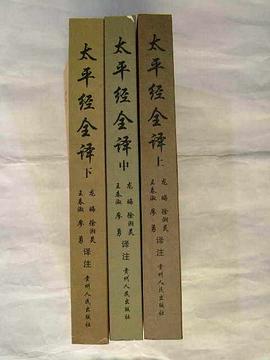 太平经全译 下
龙晦 徐湘灵
王春淑 廖勇
译注
贵州人民出版社
太平经全译 中
龙晦 徐湘灵
王春淑 廖勇
译注
贵州人民出版社
太平经全译 上
龙晦 徐湘灵
王春淑 廖勇
译注
贵州人民出版社